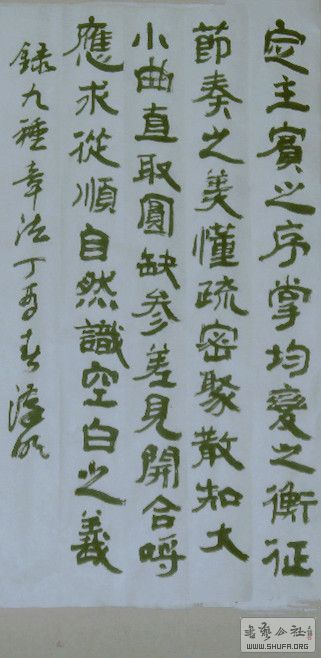 定主賓之序掌均變之衡征
節奏之美懂疏密聚散知大
小曲直取圓缺參差見開合呼
應求從順自然識空白之義
錄九種章法丁酉春
书艺公社
WWW.SHUFA.ORG